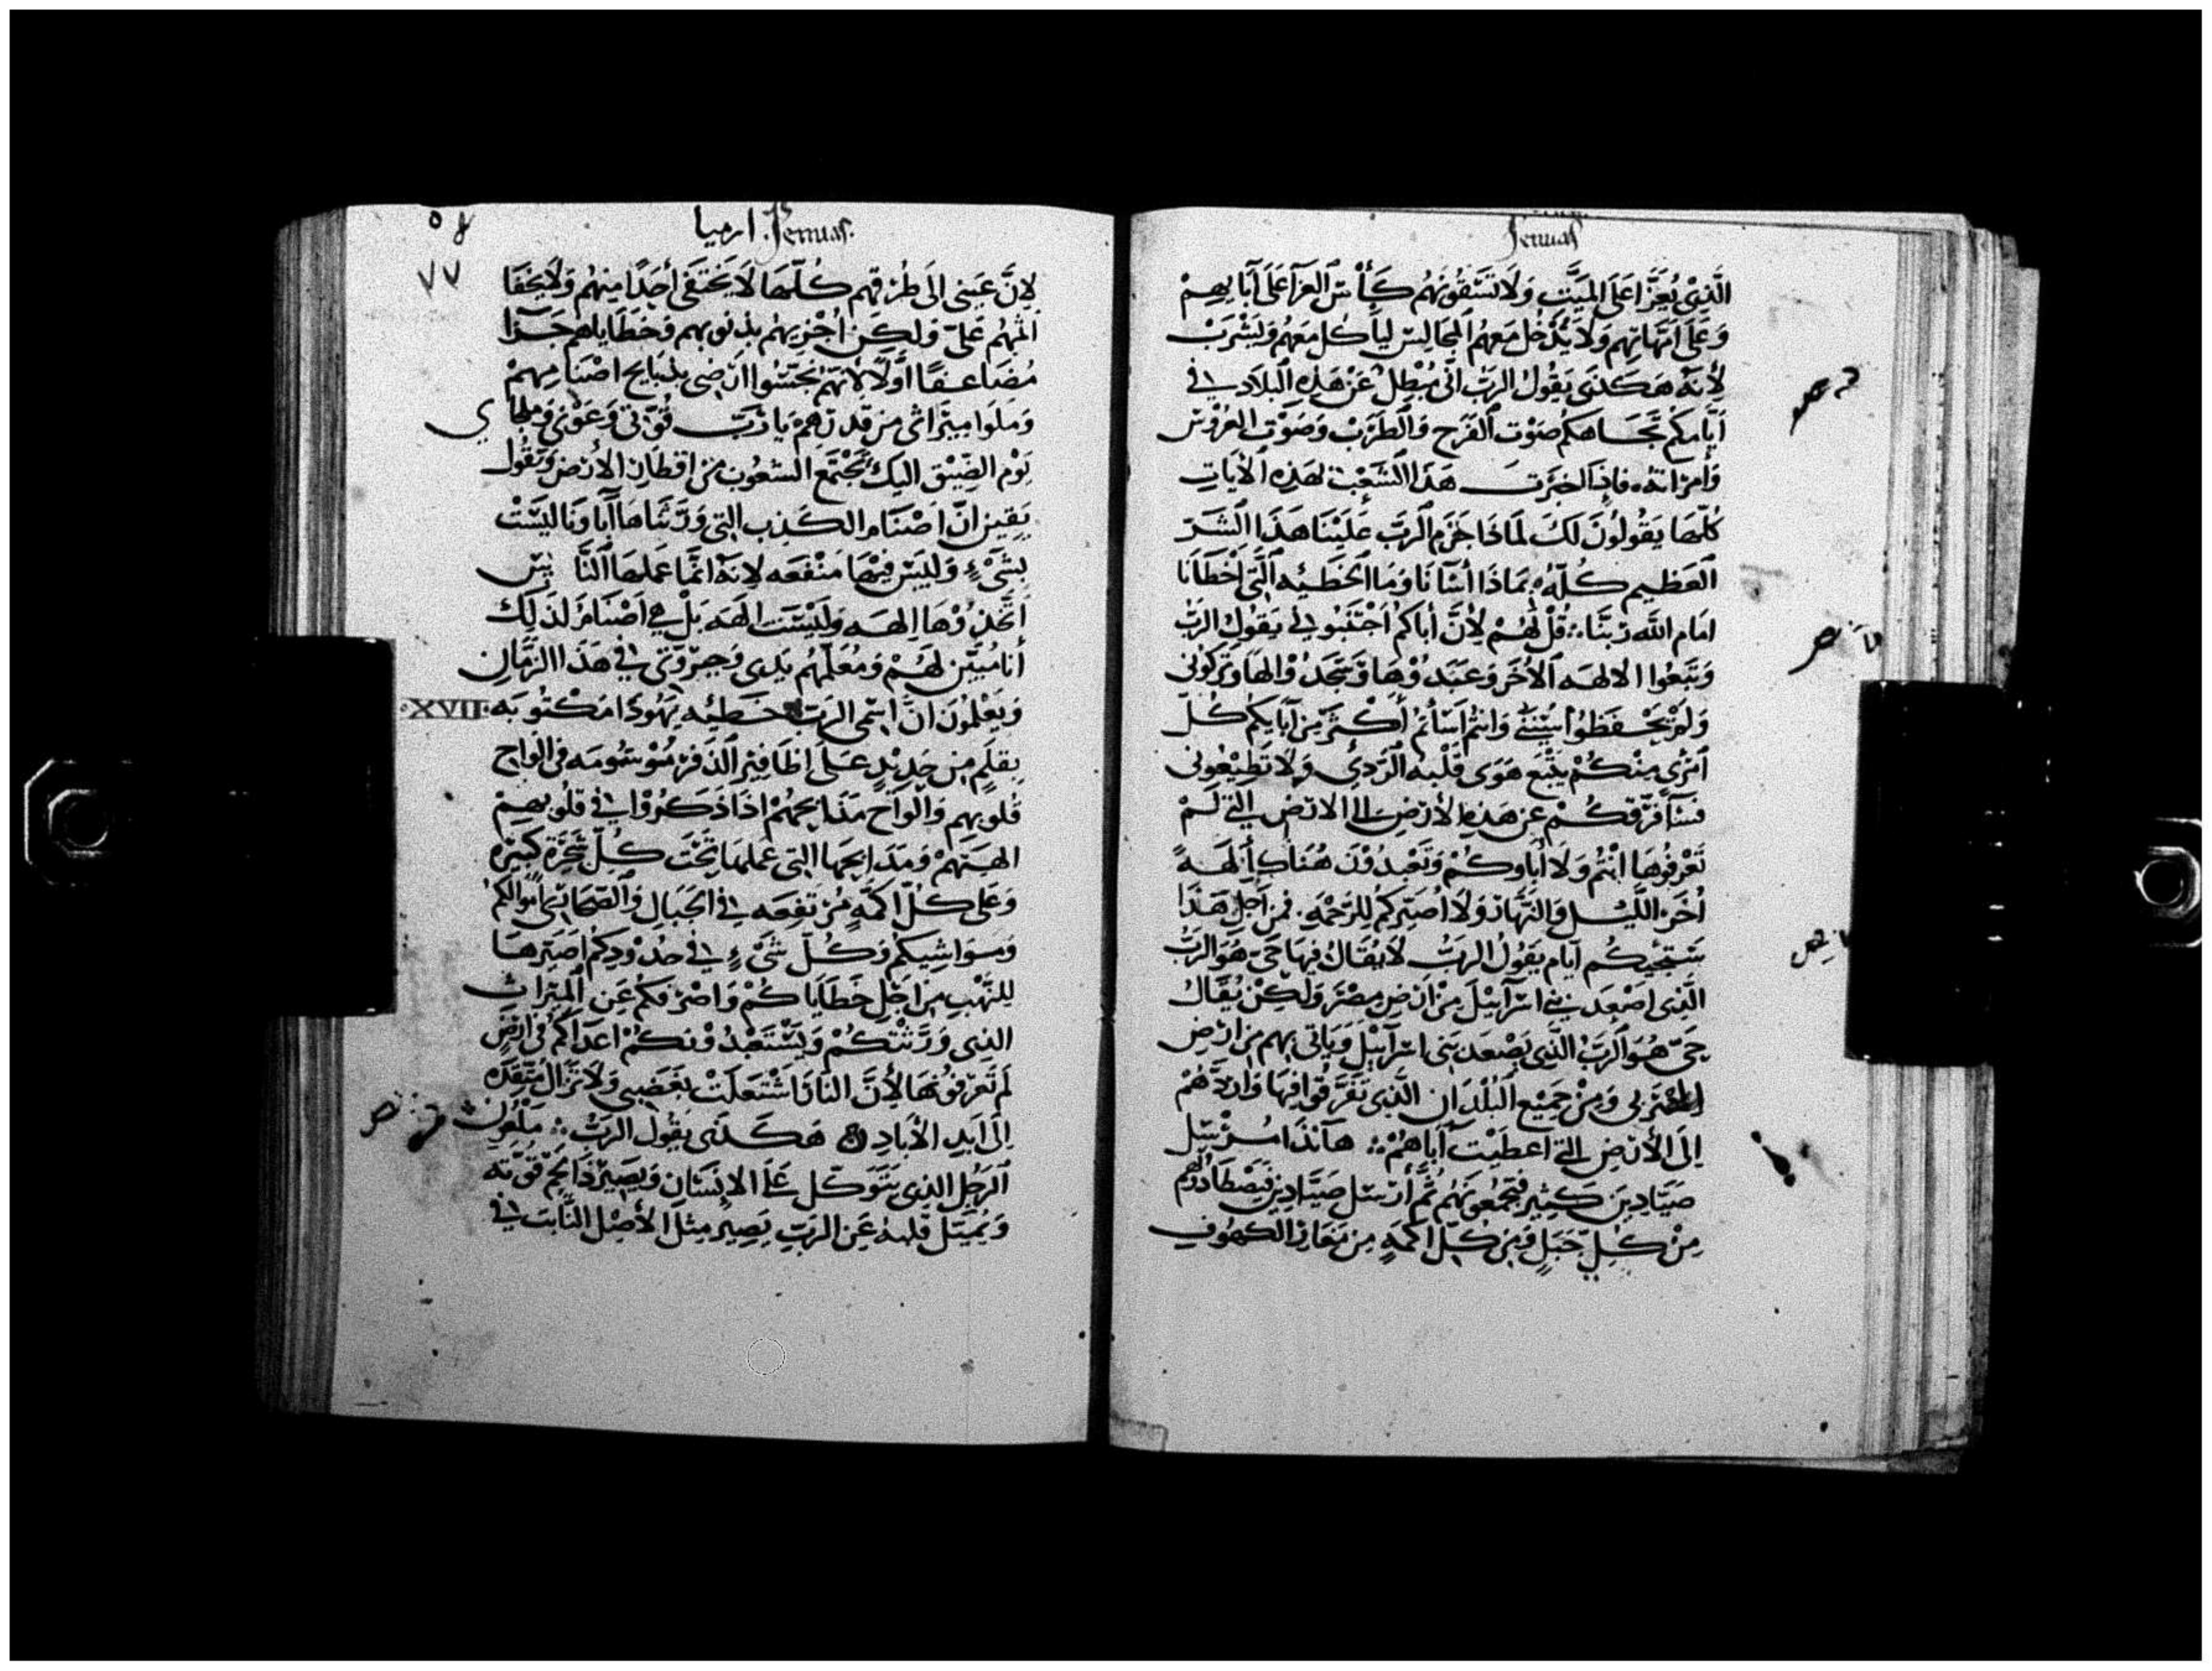 Jerimias
الَّذِيْ يُعَزَّا عَلَى المَيَّتِ وَلَا تَسْقُونَهُم كَأْسَ العزَآ عَلَى آبَايِهِمْ
وَعَلَى امَّهَاتِهِم وَلَا يَدْخُل مَعَهُم المجَالِسَ لِيَأكُل مَعَهُم وَيَشْرَبْ
لأِنَّهُ هَكَذَى يَقُولُ الرَبّ انّي مُبْطِلٌ عَنْ هَذِهِ البِلَادِ في
أَيَّامِكُم تجَاهكُم صَوْت الفَرَح وَالطَرَبْ وَصَوْت العَرُوْس
وَأمرَاتهُ فاِذَا اخبَرتَ هَذَا الشَعْبْ بهَذِهِ الأيَاتِ
كُلّهَا يَقُولُونَ لَكَ لمَاذَا جَزَم الرَبّ عَلَيْنَا هَذَا الشَرّ
العَظِيم كُلّهُ بمَاذَا أسَانَا وَمَا الخَطيئه الَّتي اخْطَانَا
امَام اللّه رَبّنَا قُلْ لَهُمْ لأِنَّ أبَاكُم اجْتَنَبُونِي يَقُول الرَبّ
وَتَبَعُوا الالهَه الأخَر وَعَبَدُوْهَا وَسَجَدُوْا لهَا وَتَرَكُونى
وَلَمْ يَحْفَظُوا سُنَنِي وَانتُم اسَأتُم أكْثَر مِن آبَايكُم كُلّ
امرَيٍ مِنْكُمْ يَتْبَع هَوَى قَلْبه الرَديْ وَلَا تَطِيْعُونى
فسَأفَرّقكُمْ عَن هَذِهِ الأرْض الى الارْض الَّتي لَمْ
تَعْرفُوهَا انْتُم وَلَا أبَاوكُمْ وَتَعْبُدُوْنَ هُنَاك ألهَةً
أُخَر اللَّيْل وَالنَهَار وَلَا اُصَيّركُم لِلرَحْمه فمن أجل هَذَا
سَتَجِيْكُم ايَّام يَقُولُ الربُّ لَا يُقَالُ فِيهَا حَيّ هُوَ الربُّ
الَّذِى اصْعَدَ بَني اسْرَآئِيْلَ مِنْ ارْض مِصْرَ وَلَكِنْ يُقَالُ
حَيّ هُوَ الرَبُّ الَّذِى يَصْعَد بَنى اسرَآئيْل وَيَاتى بهِم مِن ارْض
وَمِنْ جَمِيْع البُلْدَانِ الَّذِى تَفَرَّقُوا فِيهَا وَارُدّهُمْ
اِلَى الأَرْضِ الَّتي اعطَيْت آبَاهُمْ هآنَذَا مُرْسِل
صَيَّادِيْنَ كَثِير فَيَجْمَعُونَهُم ثُمَّ أُرْسل صَيَّادِيْن فَيَصْطَادُوْهُم
مِنْ كُلّ جَبَلٍ وَمِن كُلّ اكَمَةٍ مِن مَغَاير الكهُوفِ
ارميا Jerimias
٧٧
لاِنَّ عَيْنى الَى طُرُقِهِم كُلّهَا لَا يَخْتَفى أحَدًا مِنهُم وَلَا يخْفَا
اثمهُم عَليّ وَلكِن اُجْزِيهُم بذنوبهِم وَخَطَايَاهم جَزَا
مُضَاعَفًا أوّلًا لأنَّهُم نَجّسُوا ارْضى بذبَايح اصْنَامِهِمْ
وَمَلَوا ميرَاثى مِن قَذرَهِمْ يَا رَبّ قُوّتى وَعَوْنى وَمَلجاي
يَوْم الضِيْق اليك تَجْتَمع الشعُوب مِن اقطَار الأرْض وَيَقُول
يَقِين انّ اصْنَام الكَذِب التي وَرثنَاهَا آبَاونَا ليْسَتْ
بشَيْءٍ وَليْسَ فِيْهَا مَنْفَعَه لاِنّه انمَّا عَمَلهَا النَّا يس
اتَّخذُوْهَا الِهَه وَليْسَت الهَه بَلْ هي اصْنَام لذلك
أنَا مُبَيّن لهُمْ وَمُعَلّمهُم يَدى وَجبرُوتى في هَذَا الزَمَانِ
XVII
وَيَعْلَمُونَ انَّ اسْمى الرَبّ خَطيئه يَهُودَا مَكْتُوبَه
بقلَمٍ مِن حَدِيْدٍ عَلَى اظَافِيْر الذفر مَوْسُومَه فى الوَاح
قُلُوبهِم وَالوَاح مَذَابحهُمْ اذَا ذَكَرُوْا في قلُوبهِمْ
الهتهُمْ وَمَذَابحهَا التي عَملهَا تحْت كُلّ شَجَرَة كَبيْرَه
وَعَلَى كُلّ اكَمَةٍ مُرْتفِعَه في الجبَال وَالصَحَارِي أموَالكُم
وَمَوَاشِيكُم وَكُلّ شَيْءٍ في حدُوْدِكُم اصَيّرهَا
لِلنَهْبِ مِن اجْلِ خَطَايَاكُمْ وَاصْرفكُم عَن الميْرَاثِ
الذِى وَرَّثْتكُمْ وَيَسْتَعْبدُوْنكُمْ اعدَآكُم في ارْضٍ
لَم تَعْرفُوْنهَا لأِنَّ النَار اشْتَعَلَتْ بغَضَبى وَلَا تَزَال مُتّقده
اِلَى ابَدِ الأبَادِ هَكَذَى يَقُول الرَبُّ مَلْعُون
الرَجُل الذِى يَتَوكّل عَلَى الانْسَانِ وَيَصِيْر ذَا لحْم قُوّته
وَيُميَل قلبهُ عَن الرَبّ يَصِيْر مِثْل الأصْل النَّابت في